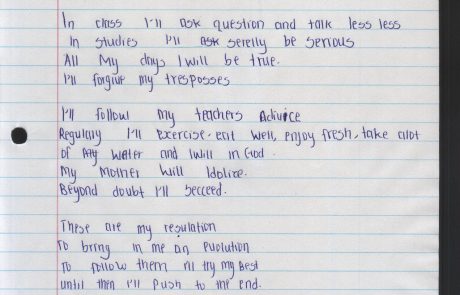 In class I'll ask question and talk less less
In studies I'll ask serelly be serious
All My days I will be true.
I'll forgive my tresposses
I'll follow my teachers Adivice
Regulary I'll Exercise. eat well, enjoy fresh, take alot
of my water and I will in God.
My Mother will Idolize.
Beyond doubt I'll secceed.
These are my resulation
To bring in me an Evolution
To follow them I'll try my Best
until then I'll Push to the end.